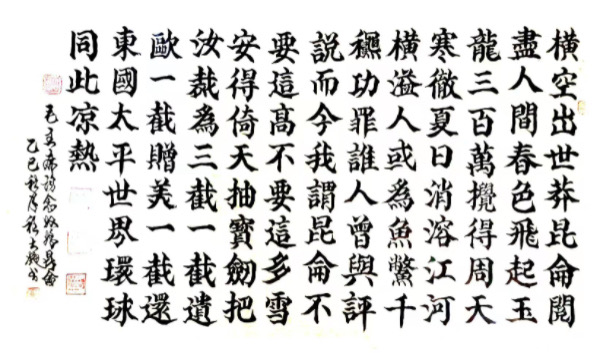 橫空出世莽昆侖閱
盡人間春色飛起玉
龍三百萬攪得周天
寒徹夏日消溶江河
橫溢人或為魚鱉千
穐功罪誰人曾與評
說而今我謂昆侖不
要這高不要這多雪
安得倚天抽寶劍把
汝裁為三截一截遺
歐一截贈美一截還
東國太平世界環球
同此凉熱
毛主席詩念奴嬌昆侖
乙巳秋月